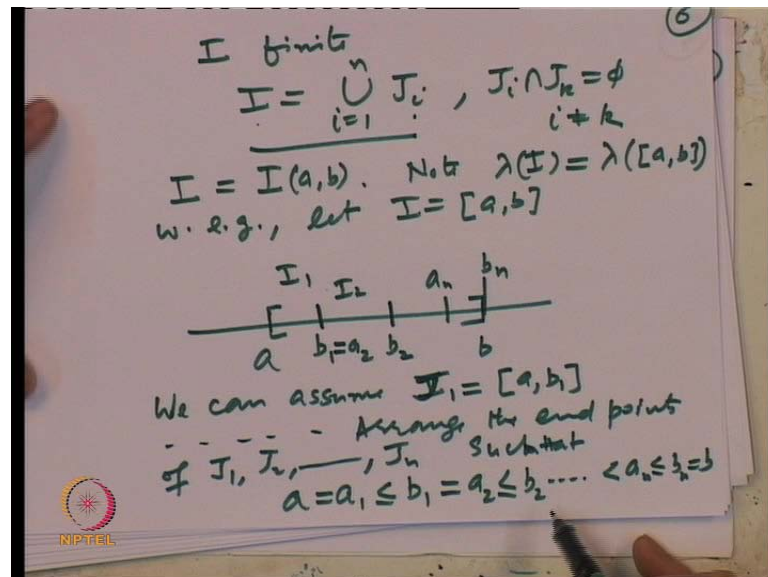 6
I finite
I = ⋃_{i=1}^{n} J_i , J_i ∩ J_k = ϕ
i ≠ k
I = I(a,b). Note λ(I) = λ([a,b])
w.l.g., let I = [a,b]
I_1 I_2 a_n b_n
a b_1=a_2 b_2 b
We can assume I_1 = [a,b_1]
- - - - - Arrange the end points
of J_1, J_2, —, J_n such that
a = a_1 ≤ b_1 = a_2 ≤ b_2 .... < a_n ≤ b_n = b
NPTEL